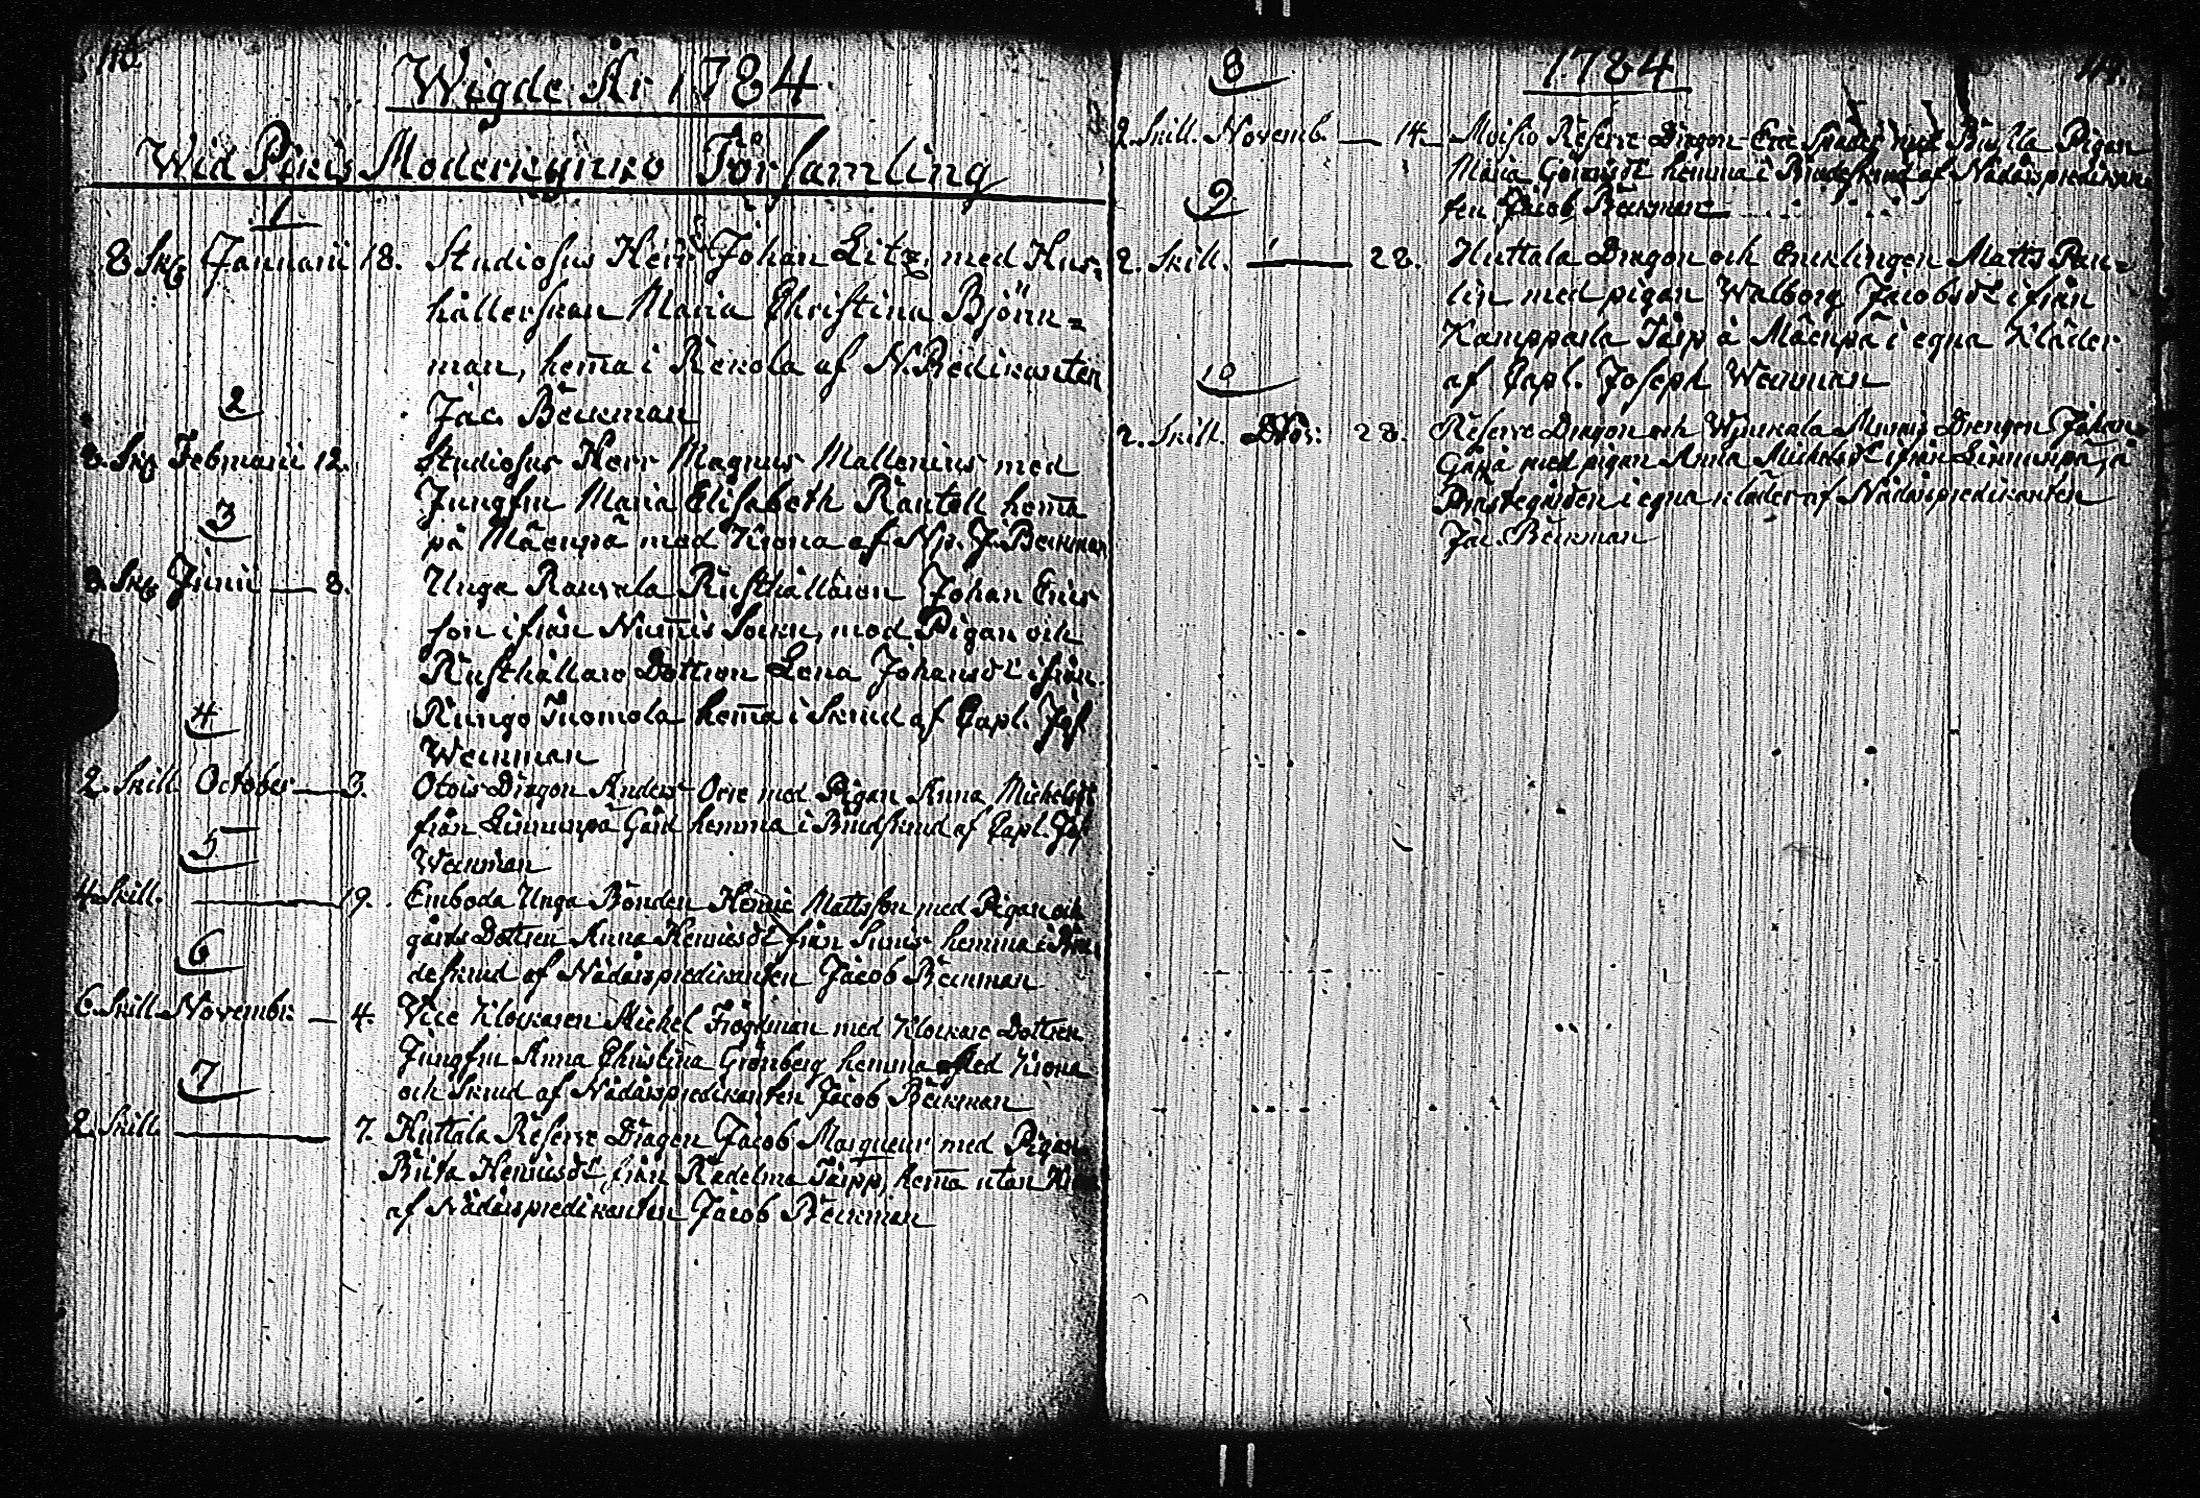 Wigde År 1784
Wid Pikis Moderkyrko Församling
1
8 Sk. Januarii 18. Studiosus Herr Johan Litz, med Hus=
hållerskan Maria Christina Björn=
man, hem̄a i Rekola af N. Predikanten
Jac. Beckman
2
8. Sk. Februarii 12. Studiosus Herr Magnus Mallenius med
Jungfru Maria Elisabeth Rantell hem̄a
på Mäenpä med Krona af Np. J. Beckman
3
8. Sk. Junii — 8. Unga Rauvala Rusthållaren Johan Erics
son ifrån Num̄is Sockn, med Pigan och
Rusthållare Dottren Lena Johansdr ifrån
Rungo Tuomola hem̄a i Skrud af Capl. Jos.
Wenman
4
2. Skill. October — 3. Otois Dragon Anders Orre med Pigan Anna Michelsdr
från Linnunpä Gård hemma i Brudskrud af Capl. Jos.
Wenman
5
4. Skill. — 19. Emboda Unga Bonden Henric Mattsson med Pigan och
gårds Dottren Anna Henricsdr från hemma i Bru
deskrud af Nådårspredikanten Jacob Beckman
6
6. Skill. Novembr. — 4. Vice Klockaren Michel Frögdman med Klockare Dottren
Jungfru Anna Christina Grönberg hemma med Krona
och Skrud af Nådårspredikanten Jacob Beckman
7
2. Skill. — 7. Huttala Reserve Dragon Jacob Marqueur med Pigan
Brita Henricsdr, från Radelma Torpp, hem̄a utan
af Nådårspredikanten Jacob Beckman
1784
8
2. Skill. Novemb. — 14. Moisio Reserve Dragon Eric med Pigan
Maria hemma i Brudeskrud af Nådårspredikan
ten Jacob Beckman
9
2. Skill. — 28. Huttala Dragon och Enklingen Matts Pau=
lin med pigan Walborg Jacobsdr ifrån
Kamppala Torp å Mäenpä i egna Kläder
af Capl. Joseph Wenman
10
2. Skill. Dbr. 28. Reserve Dragon och Drengen Johan
med pigan Anna Michelsdr ifrån Linnunpä, å
Prästegården i egna kläder af Nådårspredikanten
Jac. Beckman